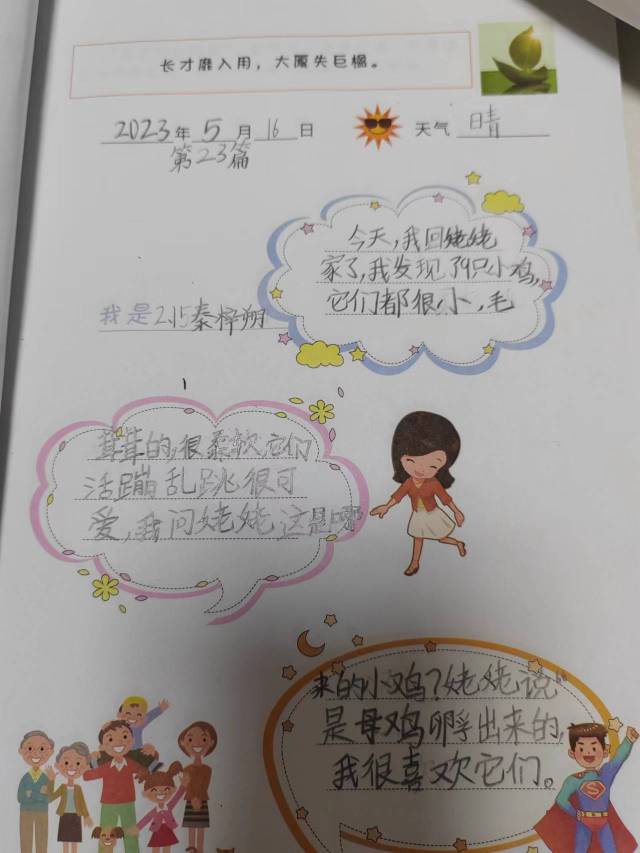 长才靡入用，大厦失巨楹。
2023年5月16日
天气 晴
第23篇
今天，我回姥姥
家了，我发现了9只小鸡，
它们都很小，毛
我是215秦梓翔
茸茸的，很柔软它们
活蹦乱跳很可
爱，我问姥姥，这是哪
来的小鸡？姥姥说“
是母鸡孵出来的，
我很喜欢它们。